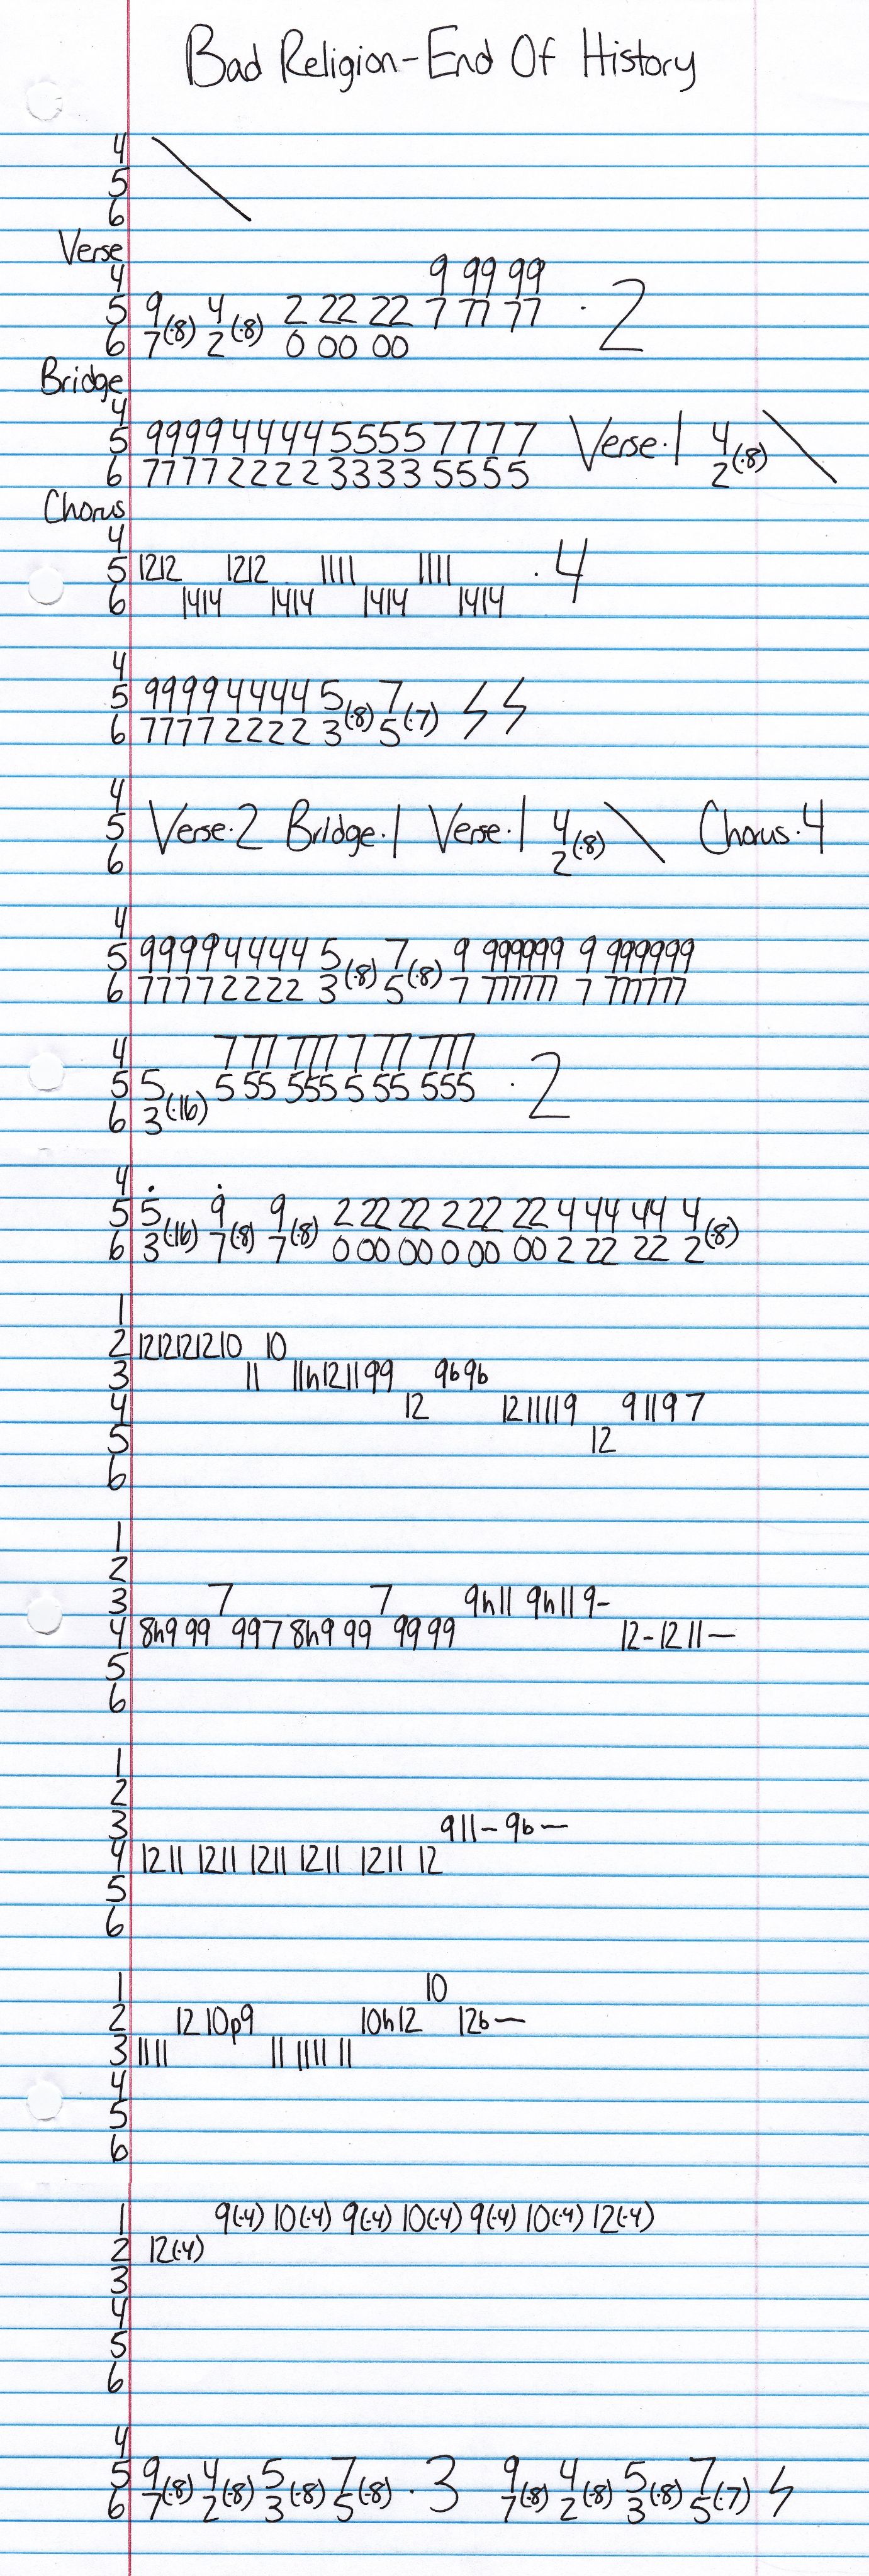 Bad Religion-End Of History
4
5
6
Verse
4 9 99 99
5 9 4 2 22 22 7 77 77 ·2
6 7(·8) 2(·8) 0 00 00
Bridge
4
5 9999 4444 5555 7777 Verse·1 4
6 7777 2222 3333 5555 2(·8)
Chorus
4
5 1212 1212 1111 1111 ·4
6 1414 1414 1414 1414
4
5 9999 4444 5 7
6 7777 2222 3(·8) 5(·7)
4
5 Verse·2 Bridge·1 Verse·1 4 Chorus·4
6 2(·8)
4
5 9999 4444 5 7 9 999999 9 999999
6 7777 2222 3(·8) 5(·8) 7 777777 7 777777
4 7 777 777 7 777 777
5 5 5 55 555 5 55 555 ·2
6 3(·16)
4
5 5 9 9 2 22 22 2 22 22 4 44 44 4
6 3(·16) 7(·8) 7(·8) 0 00 00 0 00 00 2 22 22 2(·8)
1
2 1212121210 10
3 11 11h121199 9b9b
4 12 1211119 91197
5 12
6
1
2
3 7 7 9h11 9h119-
4 8h999 9978h999 9999 12-1211—
5
6
1
2
3 911-9b—
4 1211 1211 1211 1211 1211 12
5
6
1 10
2 1210p9 10h12 12b—
3 1111 11 1111 11
4
5
6
1 9(·4) 10(·4) 9(·4) 10(·4) 9(·4) 10(·4) 12(·4)
2 12(·4)
3
4
5
6
4
5 9 4 5 7 ·3 9 4 5 7
6 7(·8) 2(·8) 3(·8) 5(·8) 7(·8) 2(·8) 3(·8) 5(·7)